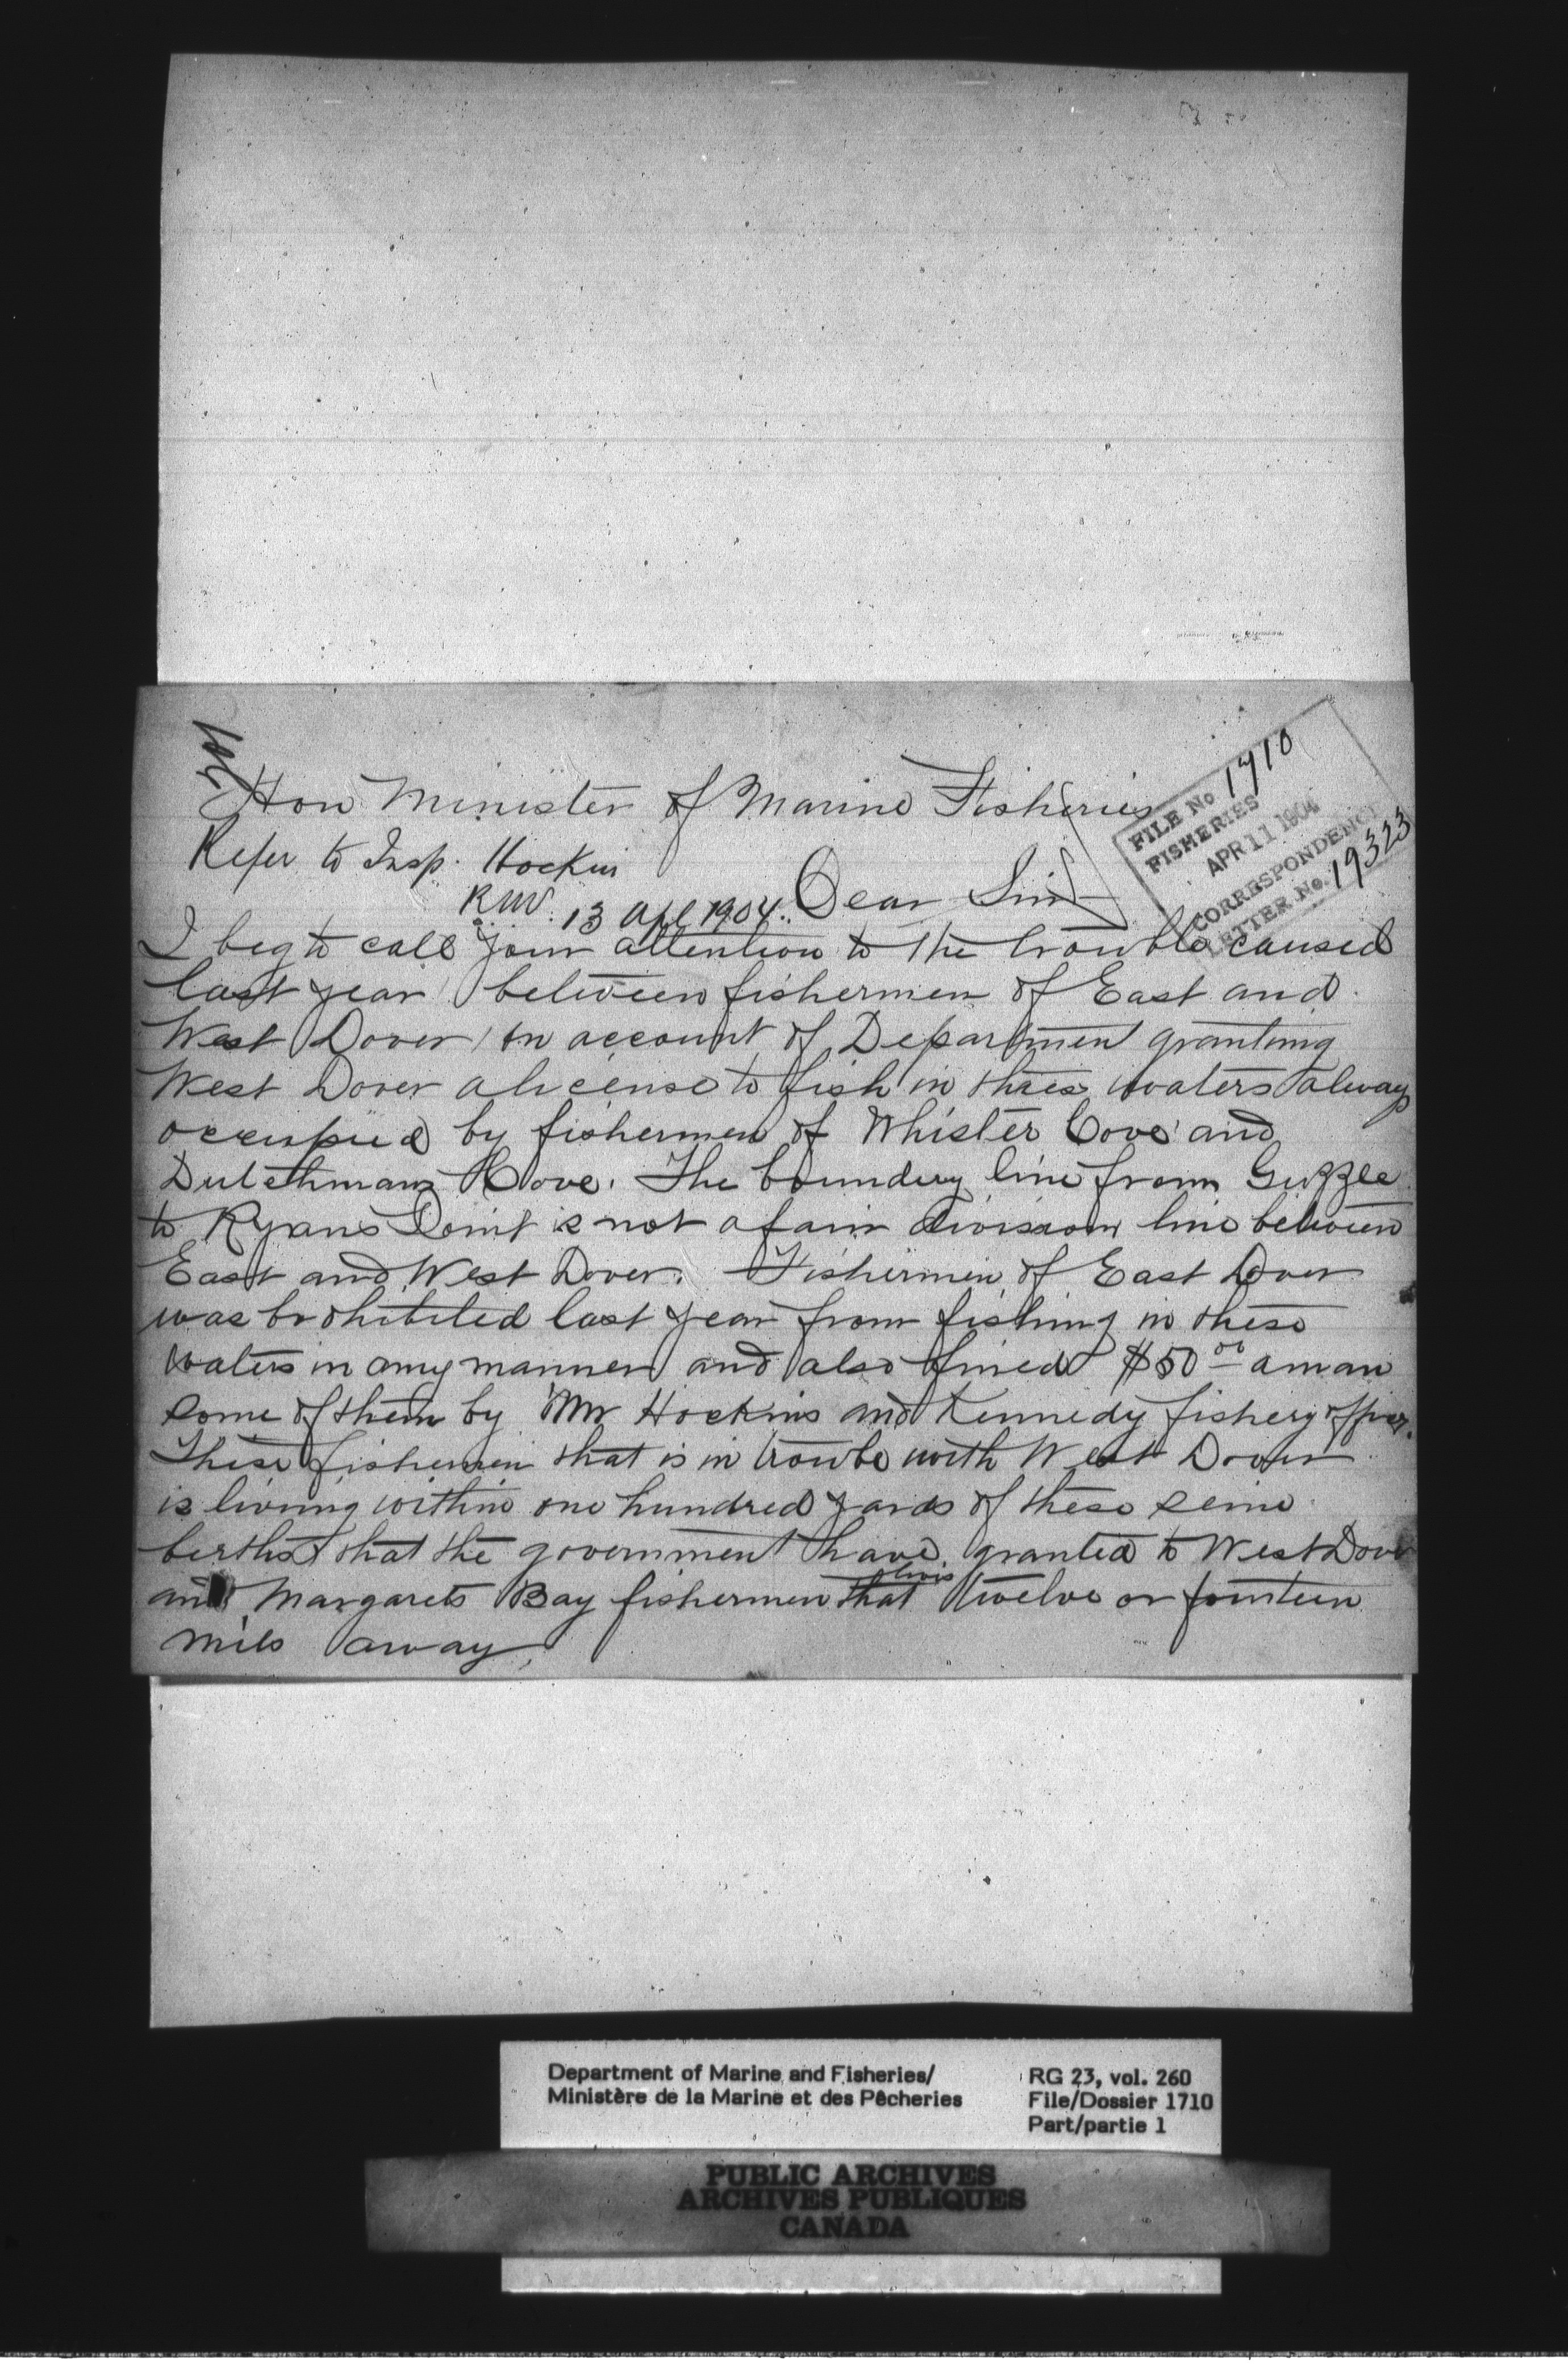 Hon Minister of Marine Fisheries
FILE No 1710
FISHERIES
APR 11 1904
CORRESPONDENCE
LETTER No. 19323
Refer to Insp. Hockin
13 Apl 1904.
Dear Sir
I beg to call your attention to the trouble caused
last year between fishermen of East and
West Dover on account of Departmen granting
West Dover a license to fish in thies waters alway
occupied by fishermen of Whister Cove and
Dutchmans Cove. The boundry line from Guzzle
to Ryans Point is not a fair division line between
East and West Dover. Fishermen of East Dover
was brohibited last year from fishing in these
waters in any manner and also fined $50 00 a man
some of them by Mr Hockins and Kennedy fishery officer.
These fishermen that is in trouble with West Dover
is living within one hundred yards of these seine
berths that the government have granted to West Dover
and Margarets Bay fishermen that livis twelve or fourteen
mils away,
Department of Marine and Fisheries/
Ministère de la Marine et des Pêcheries
RG 23, vol. 260
File/Dossier 1710
Part/partie 1
PUBLIC ARCHIVES
ARCHIVES PUBLIQUES
CANADA